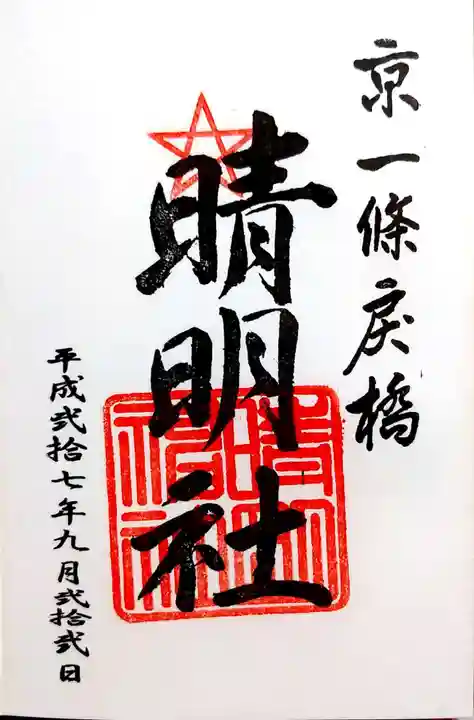 京一條戻橋
晴明社
平成弐拾七年九月弐拾弐日